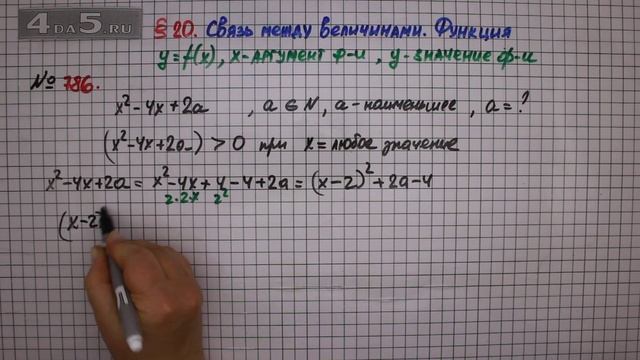 4DA5.RU
§ 20. Связь между величинами. Функция
y=f(x), x-аргумент ф-и, y-значение ф-и
№ 786.
x²-4x+2a, a∈N, a-наименьшее, a=?
(x²-4x+2a) > 0 при x=любое значение
x²-4x+2a = x²-4x+4-4+2a = (x-2)²+2a-4
2·2·x 2²
(x-2)